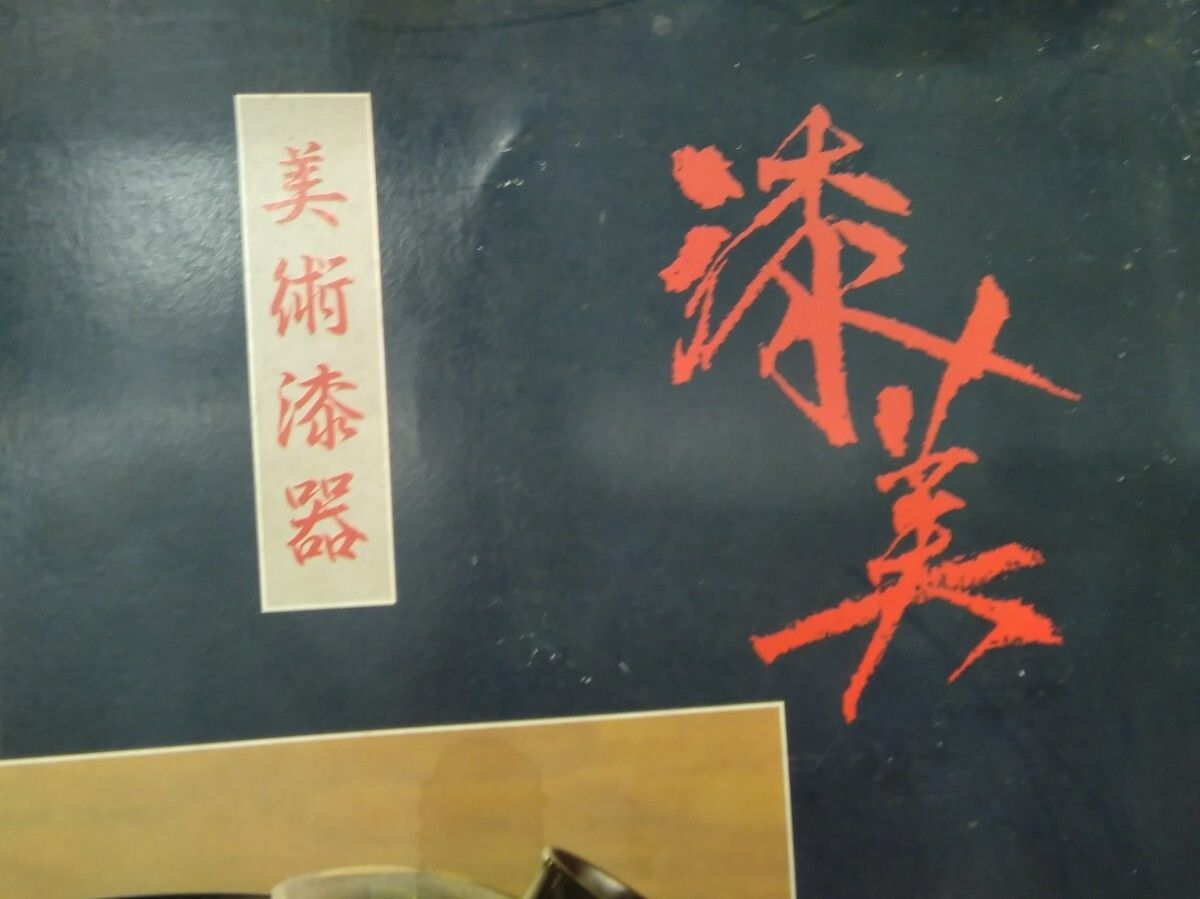 漆美
美術漆器